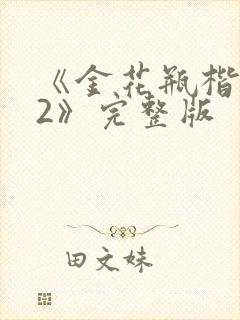 《金花瓶楷
2》完整版
田文妹